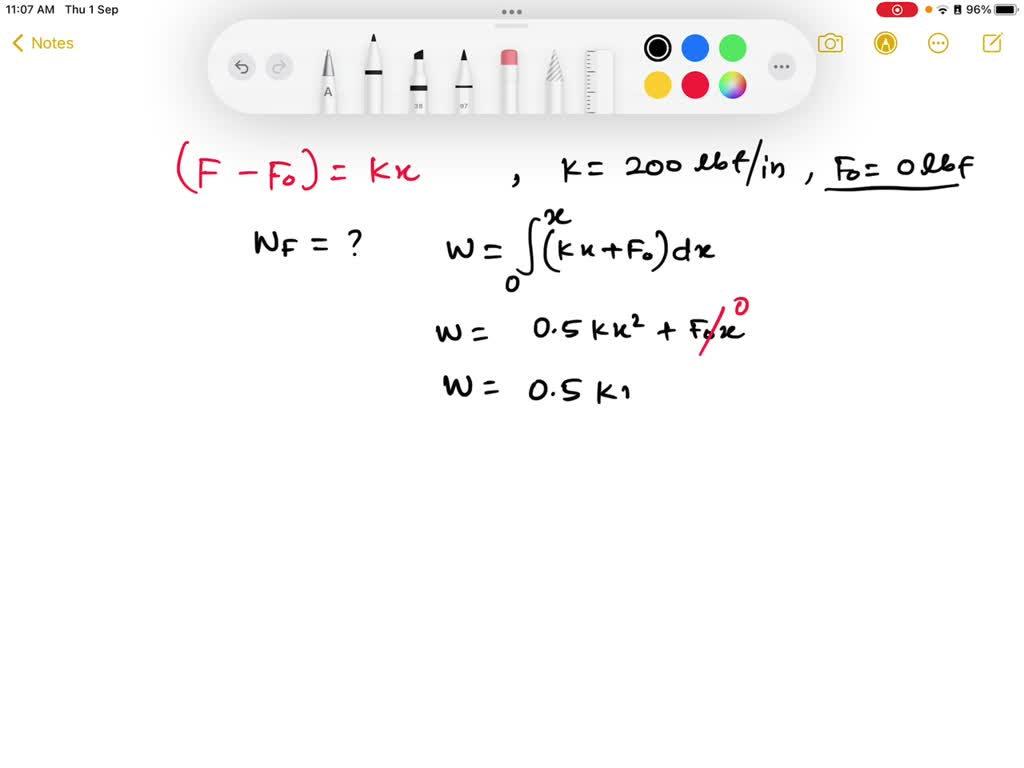 11:07 AM Thu 1 Sep
96%
Notes
A
38
97
(F - F₀) = Kx , K = 200 lbf/in , F₀ = 0 lbf
W_F = ? W = ∫₀ˣ (Kx + F₀) dx
W = 0.5 Kx² + F₀x 0
W = 0.5 K